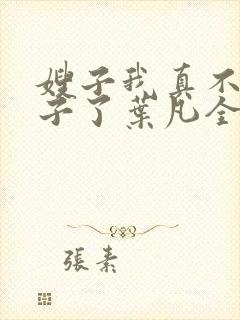 嫂子我真不
子了葉凡全
張素